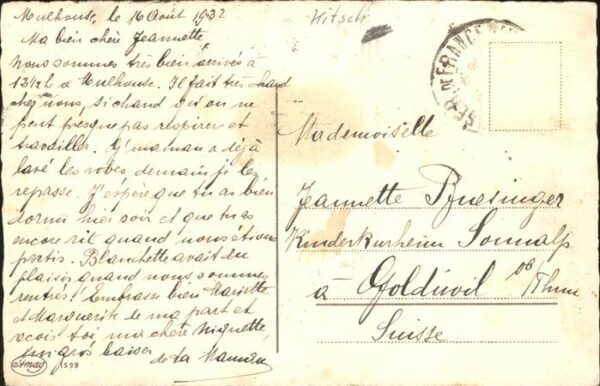 Mulhouse, le 16 Août 1932
Ma bien chère Jeannette
Nous sommes très bien arrivés à
13½h à Mulhouse. Il fait très chaud
chez nous, si chaud qu'on ne
peut presque pas respirer et
travailler. maman a déjà
lavé les robes, demain je les
repasse. J'espère que tu as bien
dormi hier soir et que tu as
encore rit quand nous étions
partis. Blanchette avait du
plaisir quand nous sommes
rentrés! Embrasse bien Mariette
et Marguerite de ma part et
reçois toi, ma chère
un gros baiser
de ta Maman
Amag 1599
Hitsch
FRANCE
Mademoiselle
Jeannette Buesinger
Kinderkurheim Sonnalp
à Goldiwil ob/Thun
Suisse